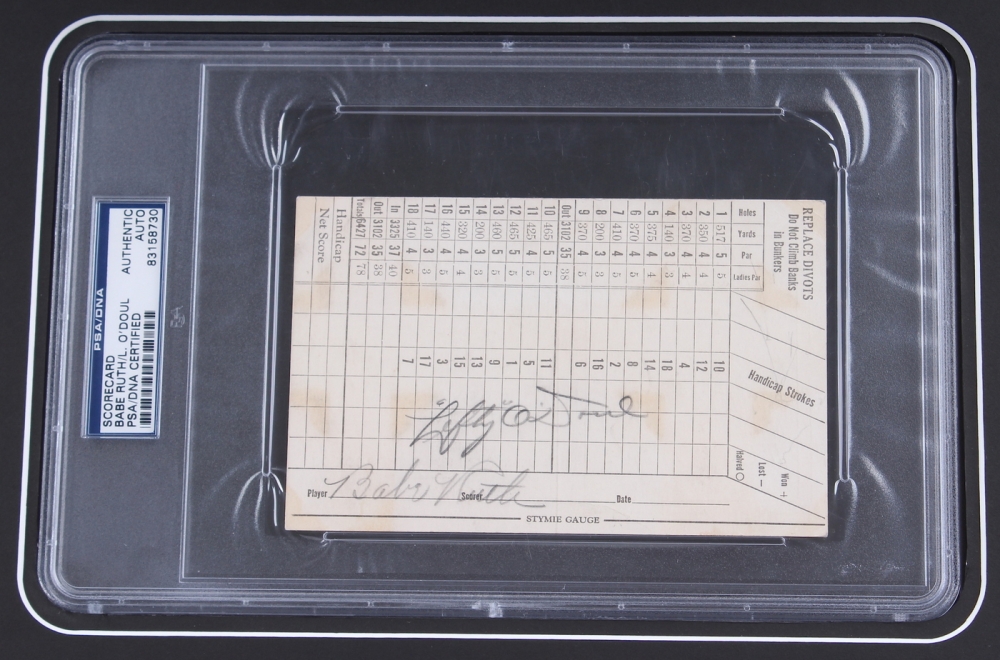 PSA/DNA
SCORECARD AUTHENTIC
BABE RUTH/L. O'DOUL AUTO
PSA/DNA CERTIFIED 83158730
REPLACE DIVOTS
Do Not Climb Banks
in Bunkers
Handicap Strokes
Won +
Lost –
Halved O
Holes Yards Par Ladies Par
1 517 5 5 10
2 350 4 4 12
3 370 4 4 4
4 140 3 3 18
5 375 4 4 14
6 370 4 5 8
7 410 4 5 2
8 200 3 3 16
9 370 4 5 6
Out 3102 35 38
10 465 5 5 11
11 425 4 5 5
12 465 5 5 1
13 460 5 5 9
14 200 3 3 13
15 320 4 4 15
16 440 4 5 3
17 140 3 3 17
18 410 4 5 7
In 3325 37 40
Out 3102 35 38
Totals 6427 72 78
Handicap
Net Score
"Lefty" O'Doul
Player Babe Ruth Scorer Date
STYMIE GAUGE